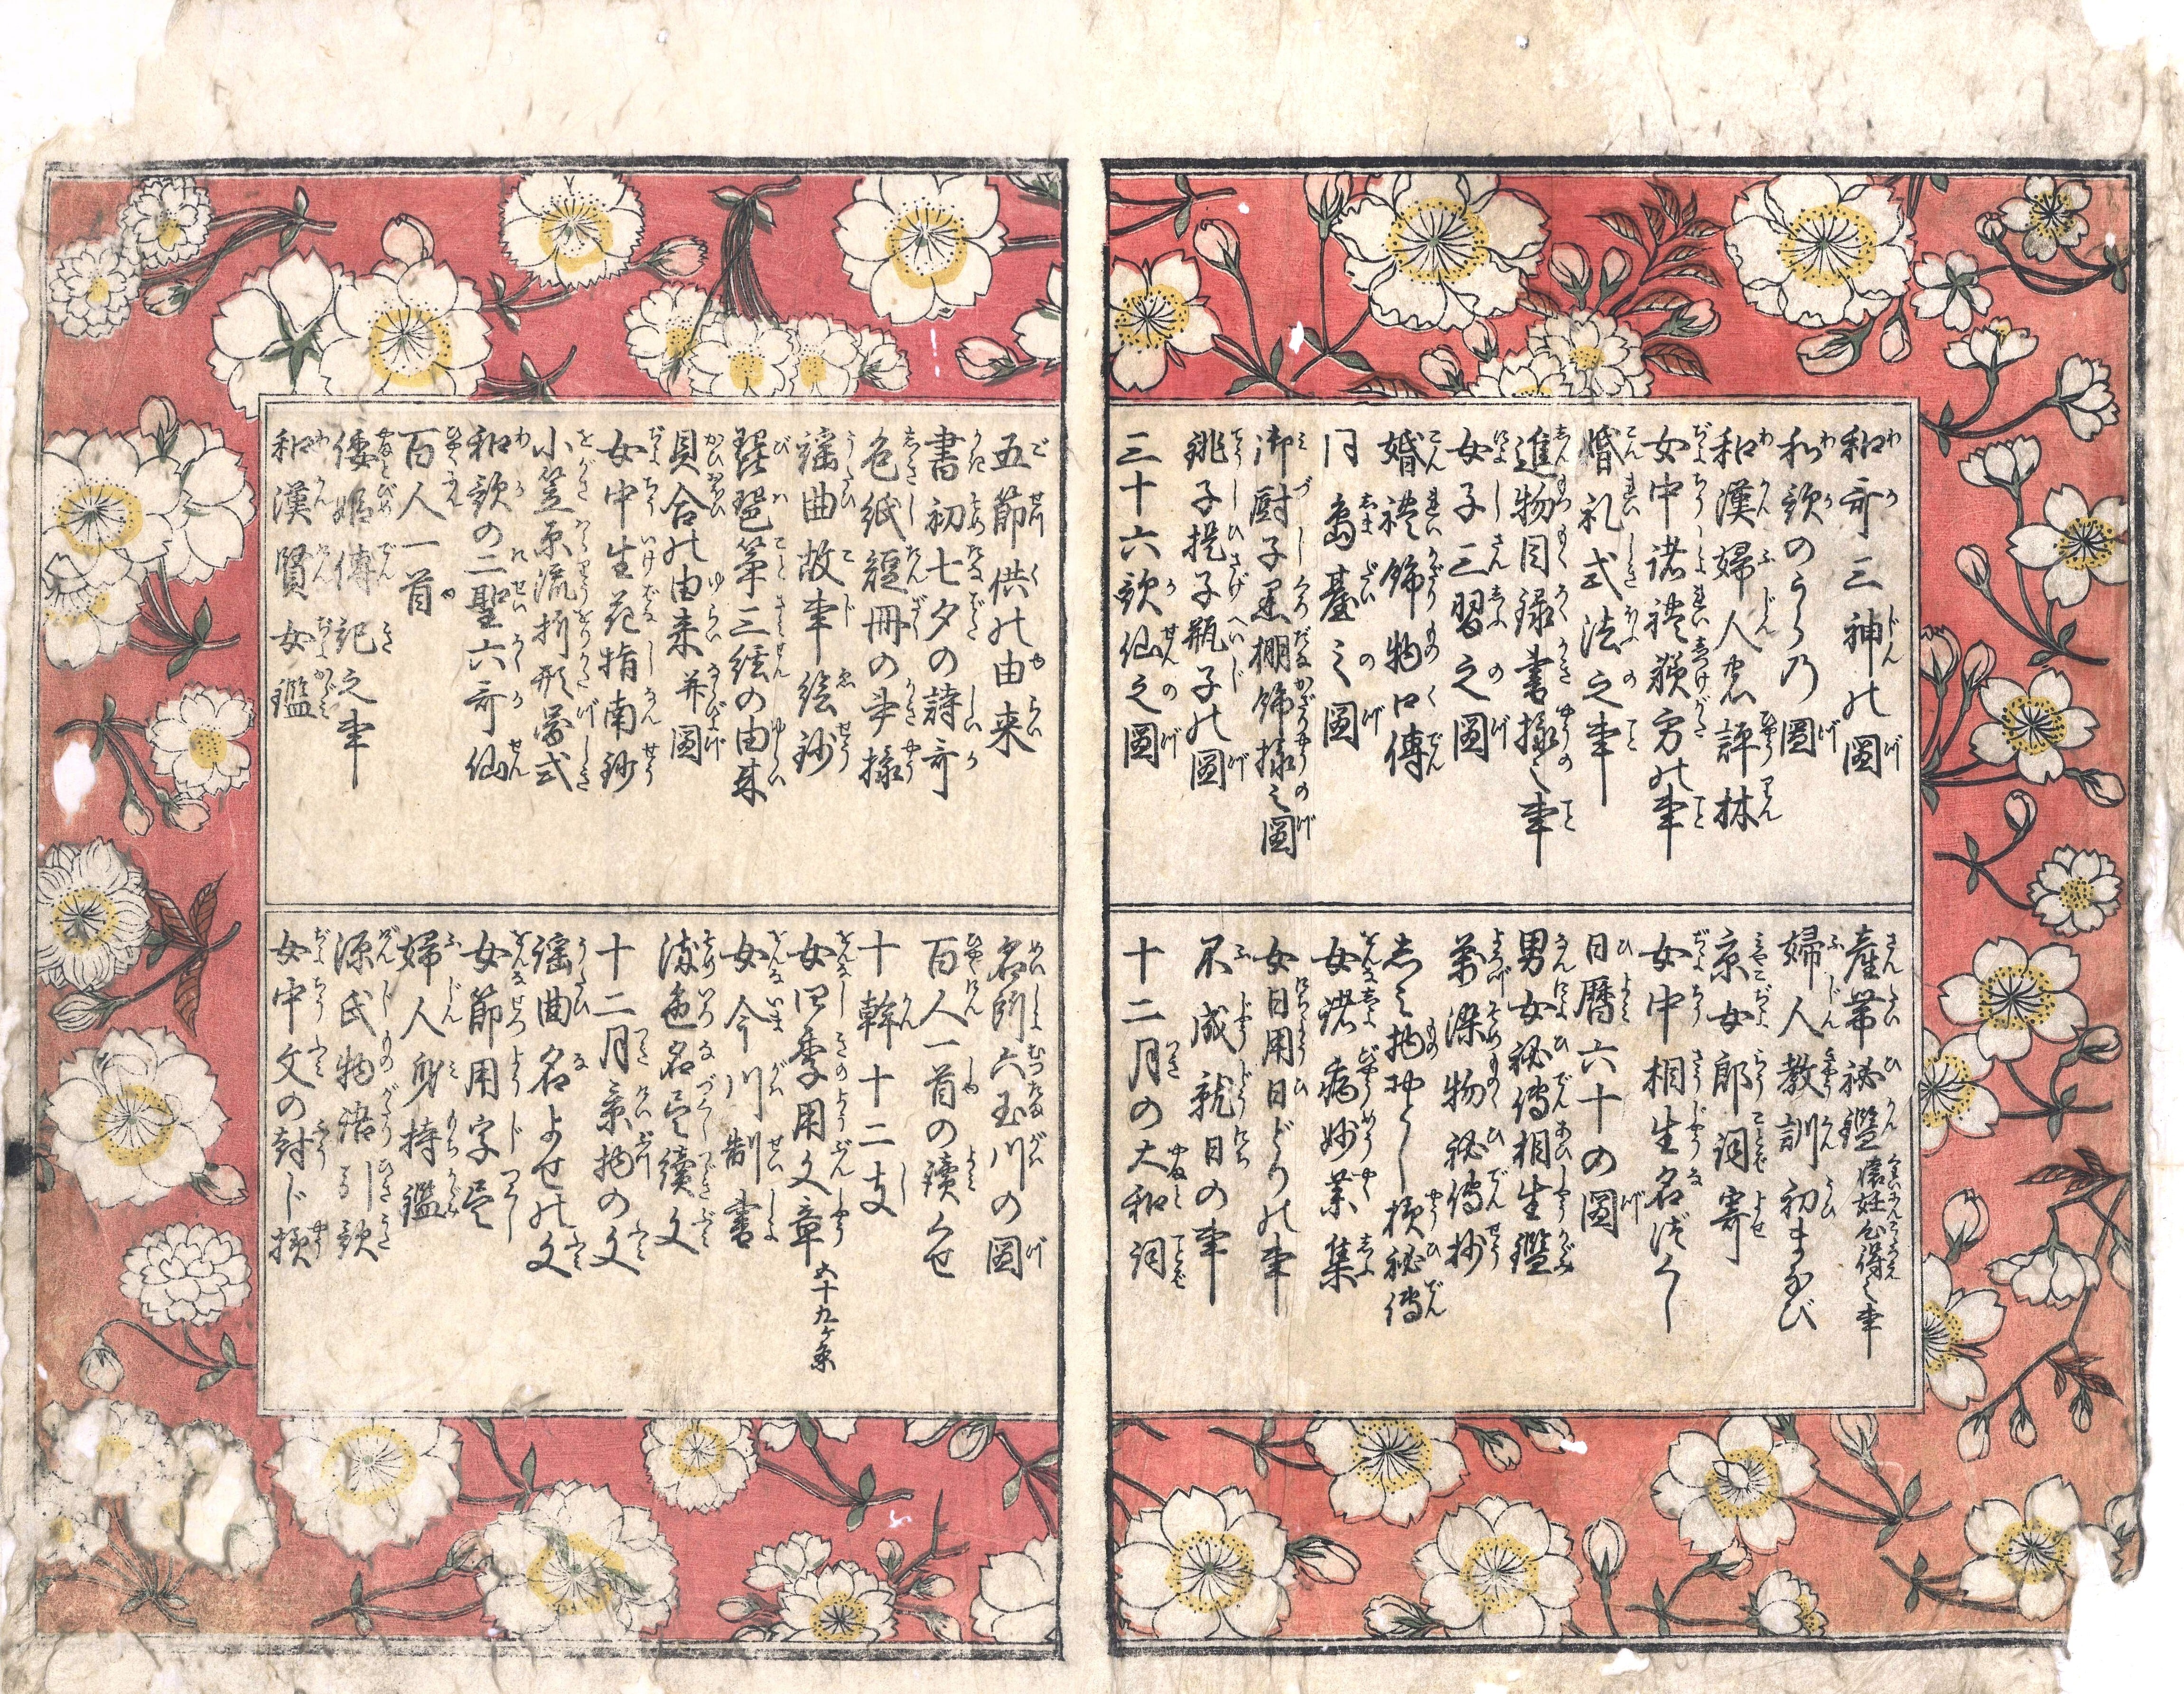 和哥三神の圖
和歌のうらの圖
和漢婦人名評林
女中諸禮躾方の事
婚礼式法之事
進物目録書様之事
女子三習之圖
婚禮餝物口傳
同嶋臺之圖
御厨子黒棚餝様之圖
銚子提子瓶子の圖
三十六歌仙之圖
産帯秘鑑 懐妊心得之事
婦人教訓初まなび
京女郎詞寄
女中相生名づくし
日暦六十の圖
男女秘傳相生鑑
萬染物秘傳抄
しみ物おとし様秘傳
女諸病妙薬集
女日用日どりの事
不成就日の事
十二月の大和詞
五節供の由来
書初七夕の詩哥
色紙短冊の書様
謡曲故事絵鈔
琵琶箏三絃の由来
貝合の由来并圖
女中生花指南鈔
小笠原流折形図式
和歌の二聖六哥仙
百人一首
倭姫傳記之事
和漢賢女鑑
名所六玉川の圖
百人一首の讀くせ
十幹十二支
女四季用文章 五十九ケ条
女今川制書
染色名尽續文
十二月景物の文
謡曲名よせの文
女節用字尽
婦人身持鑑
源氏物語引歌
女中文の封じ様